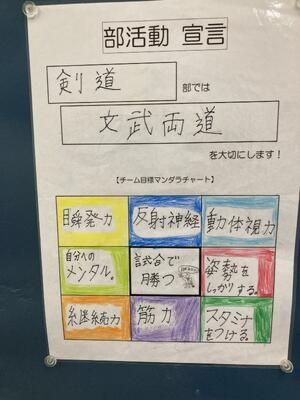 部活動 宣言
剣道
部では
文武両道
を大切にします!
【チーム目標マンダラチャート】
瞬発力
反射神経
動体視力
自分への
メンタル。
試合で
勝つ
姿勢を
しっかりする。
継続力
筋力
スタミナ
をつける。